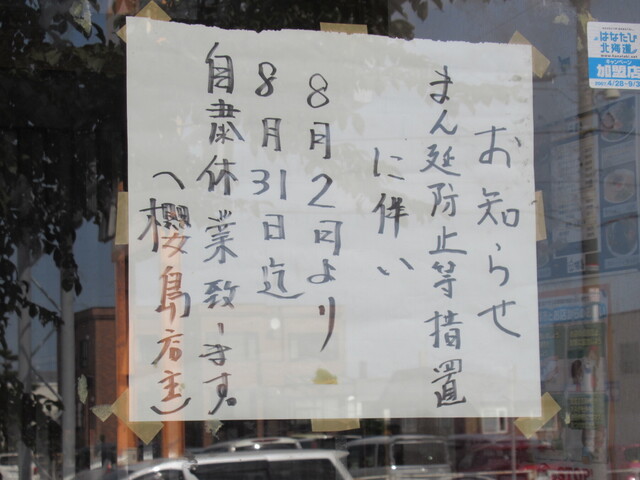 お知らせ
まん延防止等措置
に伴い
8月2日より
8月31日迄
自粛休業致します。
(櫻島店主)
はなたび
北海道
キャンペーン
加盟店